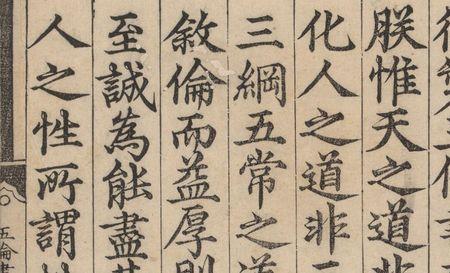 朕惟天之道非
化人之道非
三綱五常之道
敘倫而益厚則
至誠為能盡其
人之性所謂
五倫書